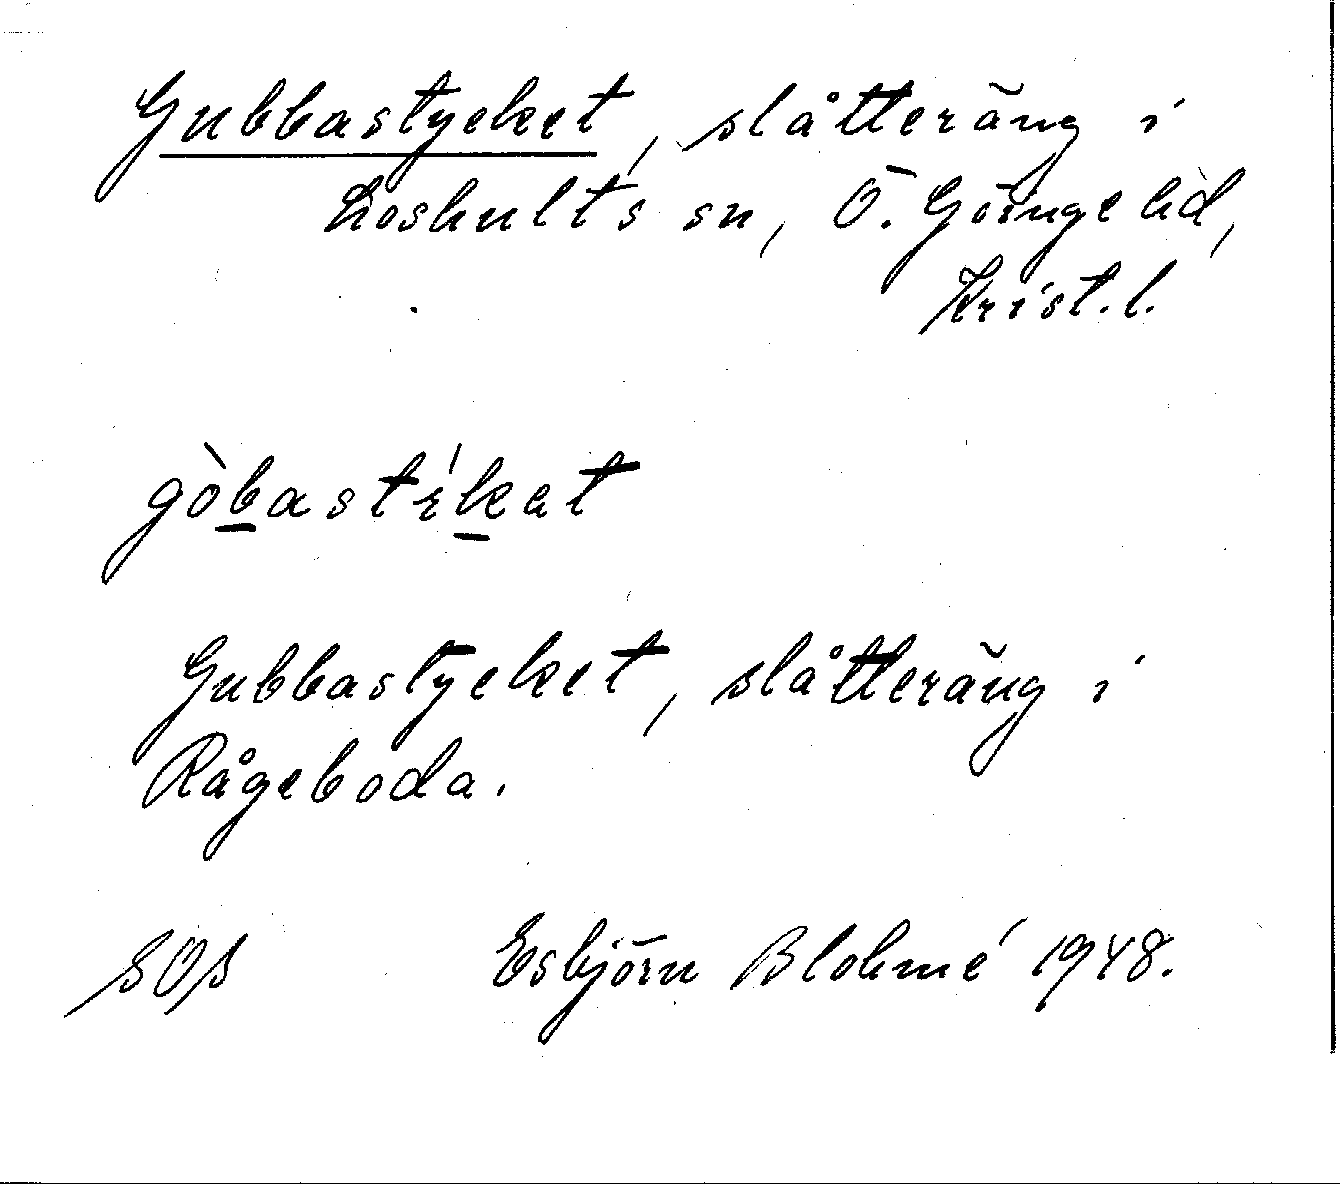 Gubbastycket, slåtteräng i
Loshults sn, Ö. Göinge hd,
Krist. l.
gòb̲astík̲at
Gubbastycket, slåtteräng i
Rågeboda.
SOS Esbjörn Blohmé 1948.